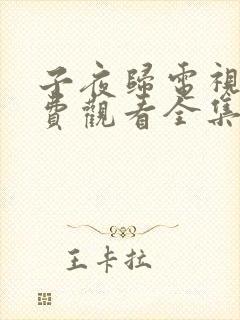 子夜歸電視
費觀看全集
王卡拉